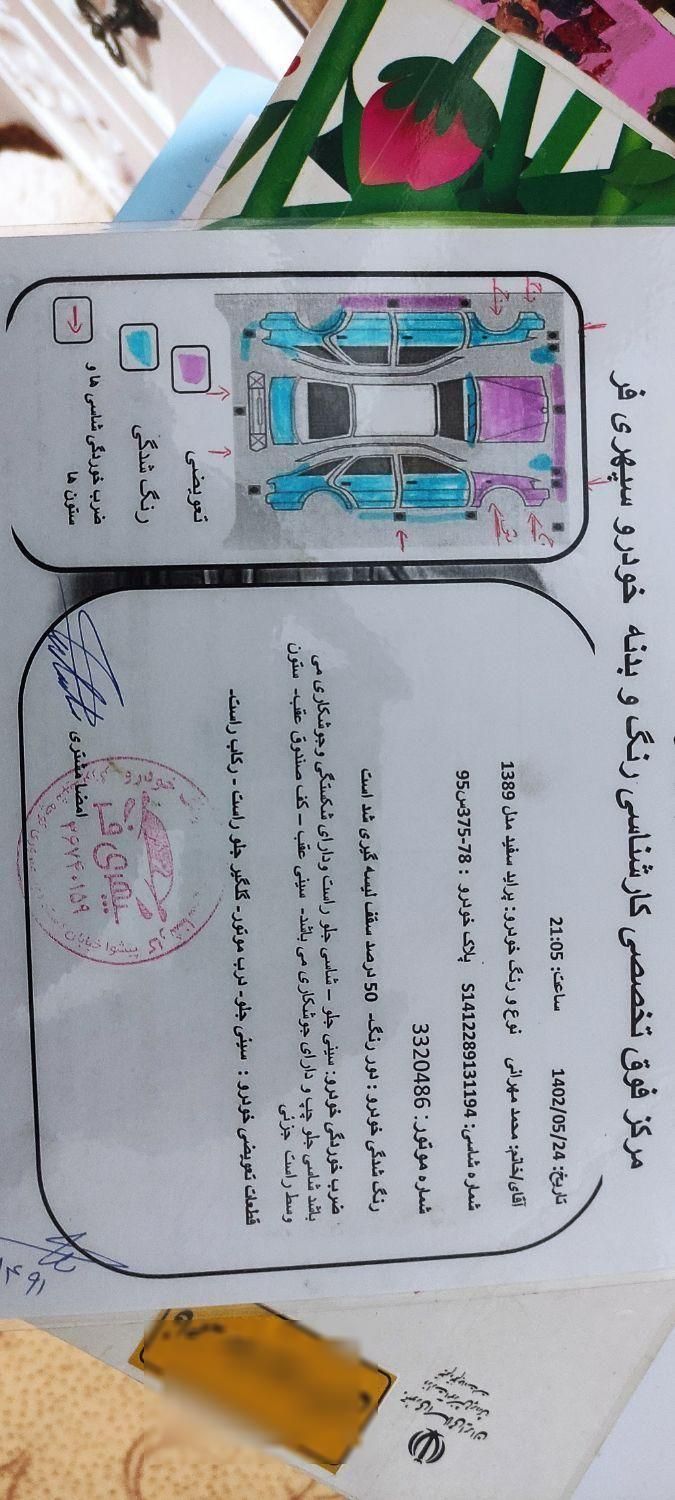 مرکز فوق تخصصی کارشناسی رنگ و بدنه خودرو سپهری فر
تاریخ: 1402/05/24 ساعت: 21:05
آقای/خانم: محمد مهرانی نوع و رنگ خودرو: پراید سفید مدل 1389
شماره شاسی: S1412289131194 پلاک خودرو : 78-375س95
شماره موتور: 3320486
رنگ شدگی خودرو : دور رنگ- 50 درصد سقف لیسه گیری شد است
ضرب خوردگی خودرو: سینی جلو – شاسی جلو راست ودارای شکستگی وجوشکاری می
باشد شاسی جلو چپ و دارای جوشکاری می باشد- سینی عقب – کف صندوق عقب- ستون
وسط راست جزئی
قطعات تعویضی خودرو : سینی جلو- درب موتور- گلگیر جلو راست - رکاب راست-
امضا مشتری
سپهری فر
۳۶۷۴۰۱۵۹
پیشوا خیابان
تعویضی
رنگ شدگی
ضرب خوردگی شاسی ها و
ستون ها